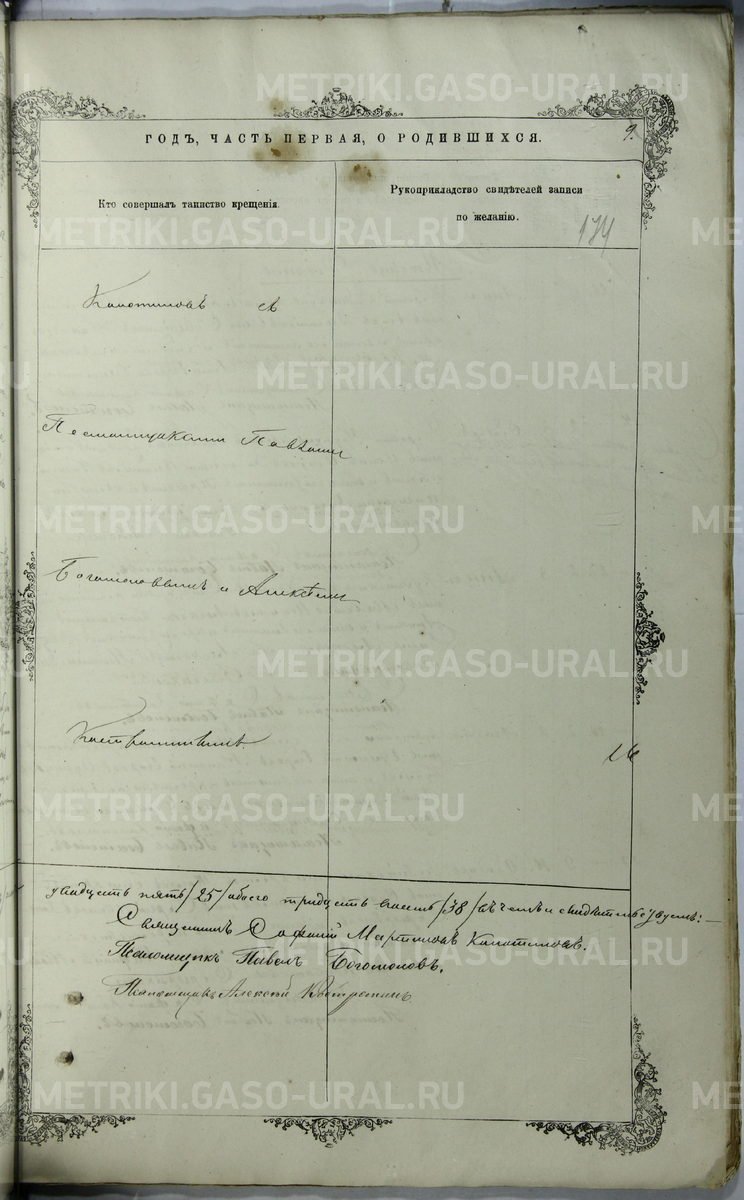 METRIKI.GASO-URAL.RU
ГОДЪ, ЧАСТЬ ПЕРВАЯ, О РОДИВШИХСЯ.
9.
Кто совершалъ таинство крещенія.
Рукоприкладство свидѣтелей записи
по желанію.
174
с
Псаломщиками Павломъ
Богомоловымъ и Алексѣемъ
Костроминымъ.
двадцать пять /25/ обоего тридцать восемь /38/ въ чемъ и свидѣтельствуемъ:
Священникъ Мартиновъ
Псаломщикъ Павелъ Богомоловъ.
Псаломщикъ Алексѣй Костроминъ